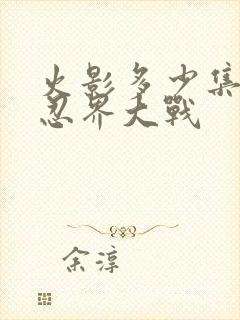 火影多少集
忍界大戰
余淳